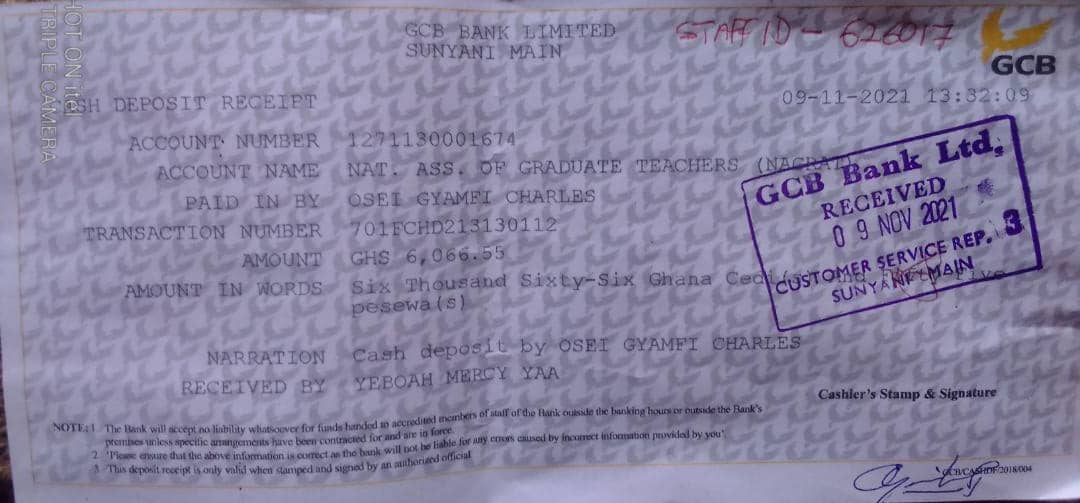 GCB BANK LIMITED
SUNYANI MAIN
STAFF ID - 626017
GCB
SHOT ON itel
TRIPLE CAMERA
CASH DEPOSIT RECEIPT
09-11-2021 13:32:09
ACCOUNT NUMBER 1271130001674
ACCOUNT NAME NAT. ASS. OF GRADUATE TEACHERS (NAGRAT)
PAID IN BY OSEI GYAMFI CHARLES
TRANSACTION NUMBER 701FCHD213130112
AMOUNT GHS 6,066.55
AMOUNT IN WORDS Six Thousand Sixty-Six Ghana Cedi
pesewa(s)
NARRATION Cash deposit by OSEI GYAMFI CHARLES
RECEIVED BY YEBOAH MERCY YAA
GCB Bank Ltd,
RECEIVED
09 NOV 2021
CUSTOMER SERVICE REP. 3
SUNYANI MAIN
Cashier's Stamp & Signature
NOTE: 1 The Bank will accept no liability whatsoever for funds handed to accredited members of staff of the Bank outside the banking hours or outside the Bank's
premises unless specific arrangements have been contracted for and are in force.
2. "Please ensure that the above information is correct as the bank will not be liable for any errors caused by incorrect information provided by you"
3 This deposit receipt is only valid when stamped and signed by an authorized official